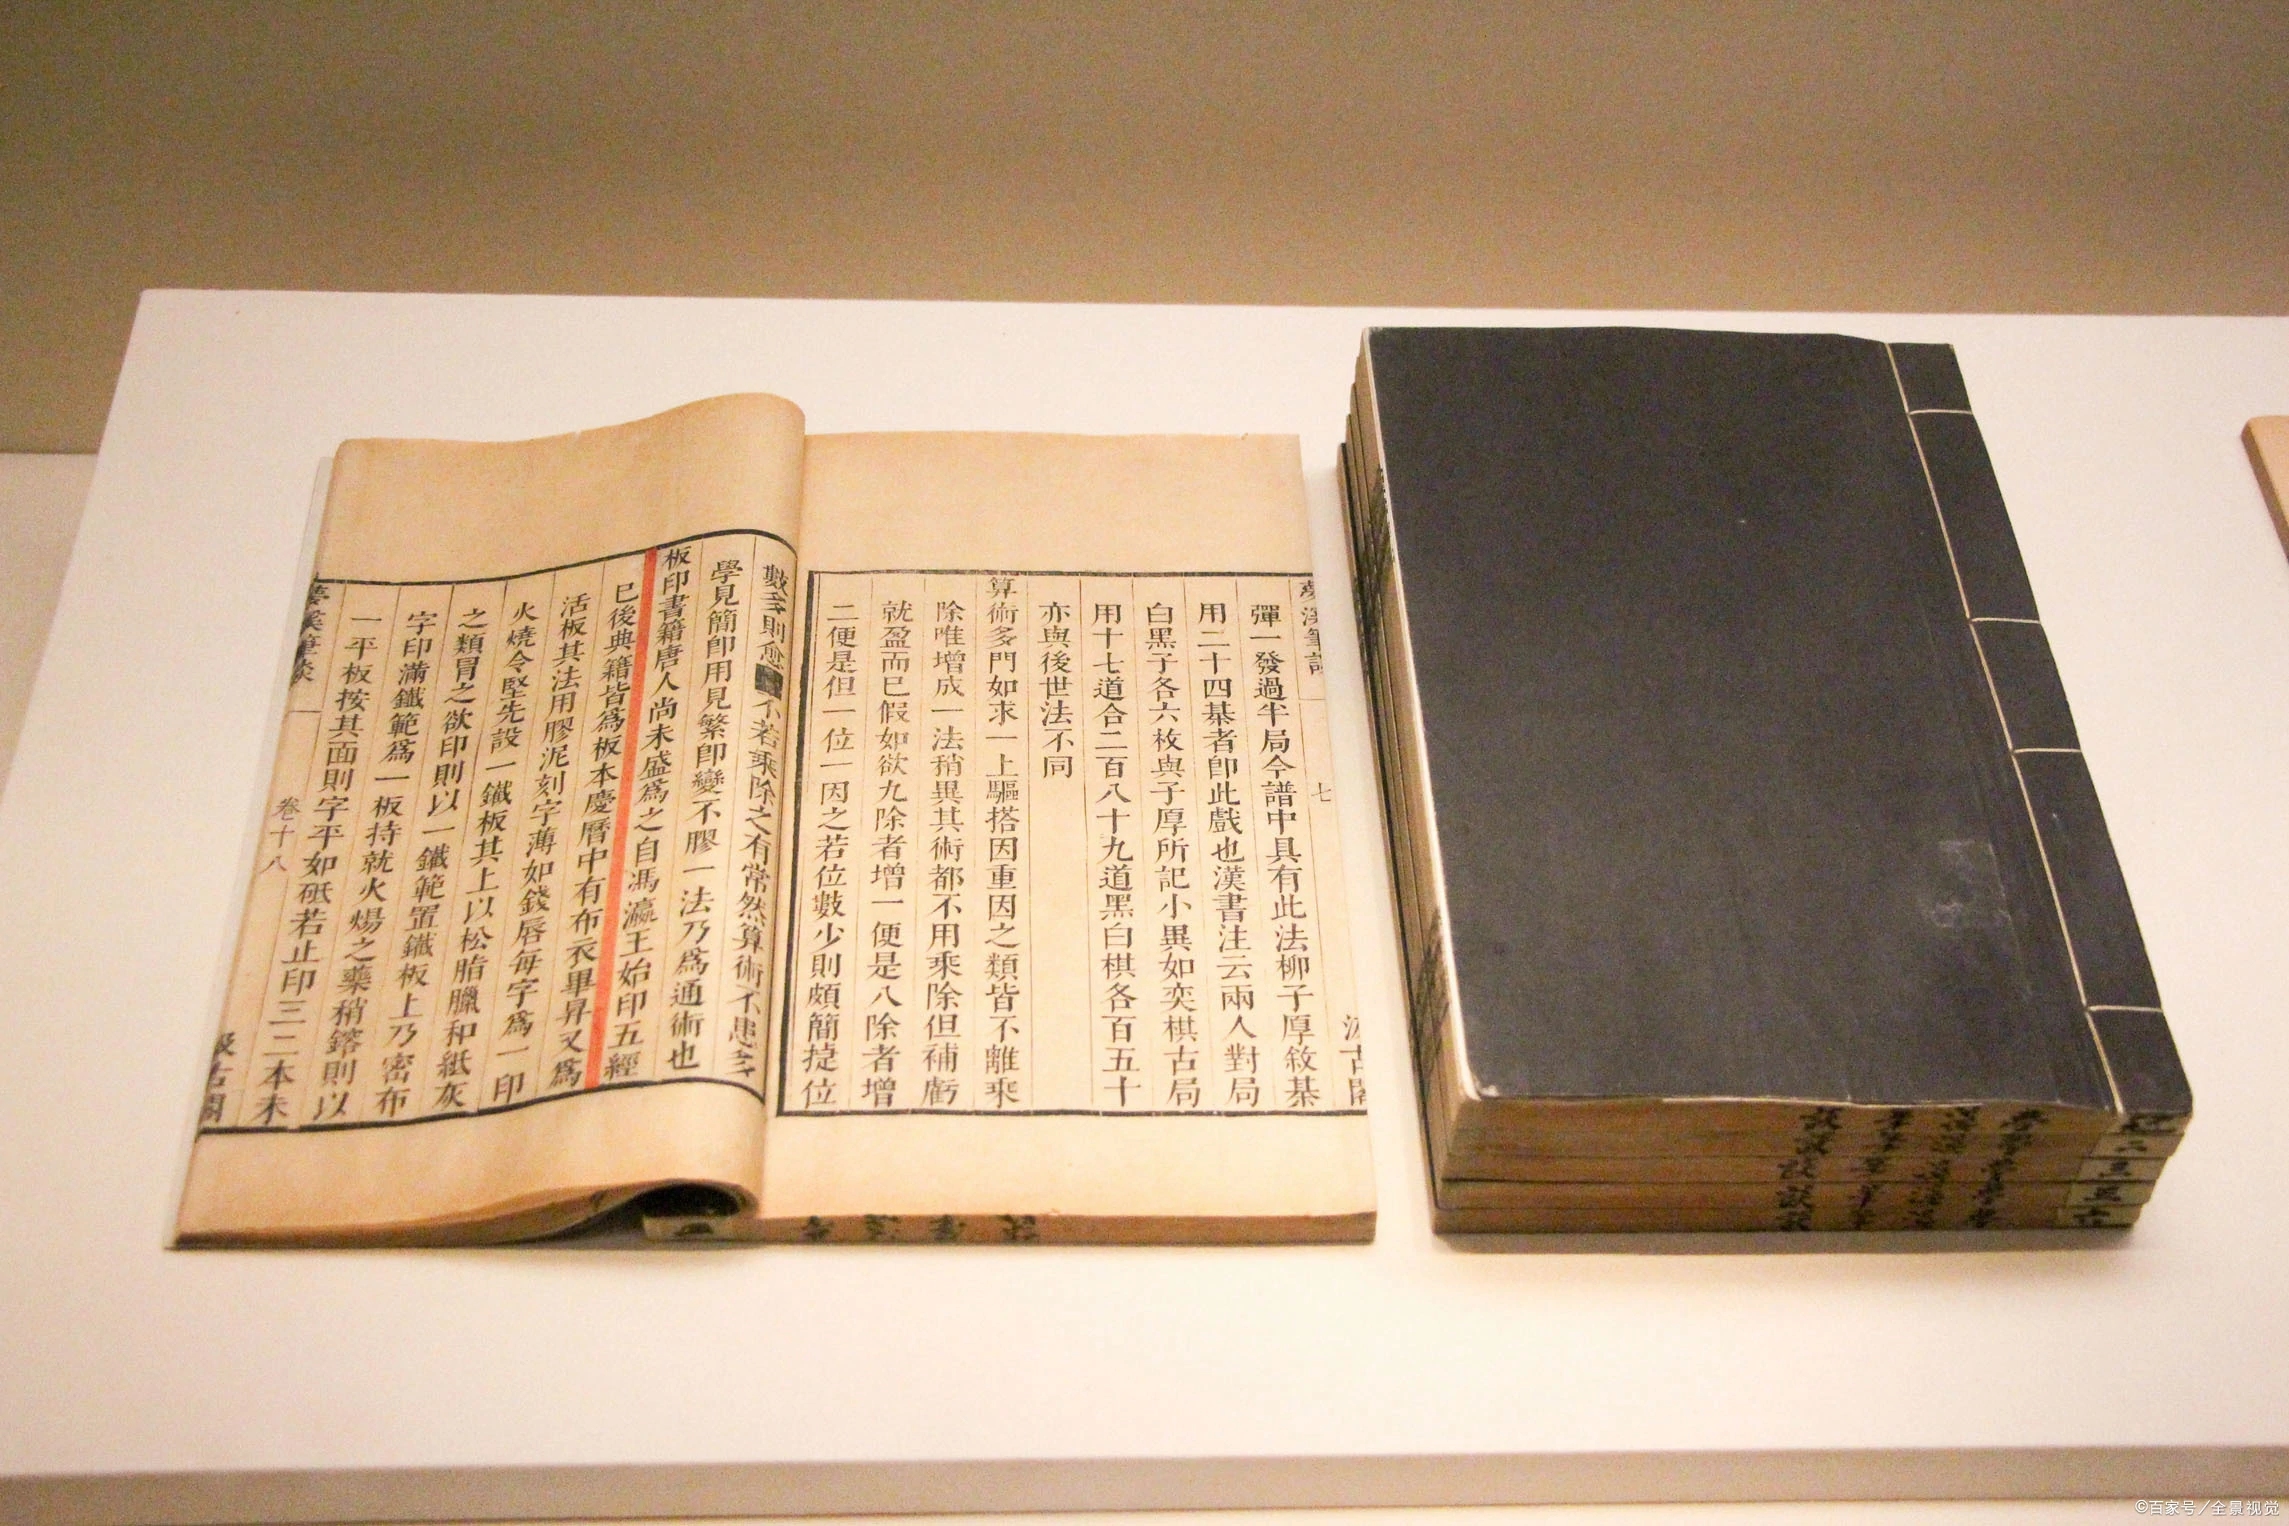 夢溪筆談
七
汲古閣
彈一發過半局今譜中具有此法柳子厚敘棊
用二十四棊者卽此戲也漢書注云兩人對局
白黑子各六枚與子厚所記小異如奕棋古局
用十七道合二百八十九道黑白棋各百五十
亦與後世法不同
算術多門如求一上驅搭因重因之類皆不離乘
除唯增成一法稍異其術都不用乘除但補虧
就盈而已假如欲九除者增一便是八除者增
二便是但一位一因之若位數少則頗簡捷位
數多則愈 不若乘除之有常然算術不患多
學見簡卽用見繁卽變不膠一法乃爲通術也
板印書籍唐人尚未盛爲之自馮瀛王始印五經
已後典籍皆爲板本慶曆中有布衣畢昇又爲
活板其法用膠泥刻字薄如錢唇每字爲一印
火燒令堅先設一鐵板其上以松脂臘和紙灰
之類冒之欲印則以一鐵範置鐵板上乃密布
字印滿鐵範爲一板持就火煬之藥稍鎔則以
一平板按其面則字平如砥若止印三二本未
夢溪筆談
卷十八
汲古閣
©百家号/全景视觉